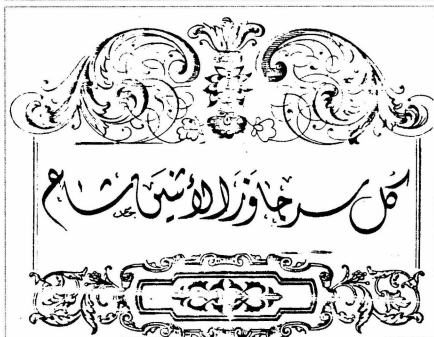 كل سر جاوز الأثنين شاع